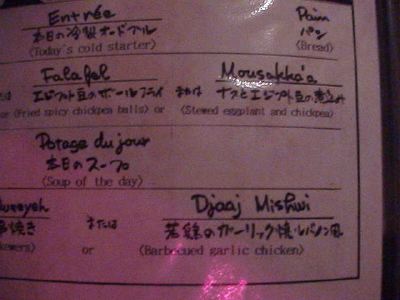 Entrée Pain
本日の冷製オードブル パン
(Today's cold starter) (Bread)
Falafel Mousakka'a
エジプト豆のボールフライ または ナスとエジプト豆の煮込み
or (Fried spicy chickpea balls) or (Stewed eggplant and chickpea)
Potage du jour
本日のスープ
(Soup of the day)
Djaaj Mishwi
串焼き または 若鶏のガーリック焼レバノン風
or (Barbecued garlic chicken)